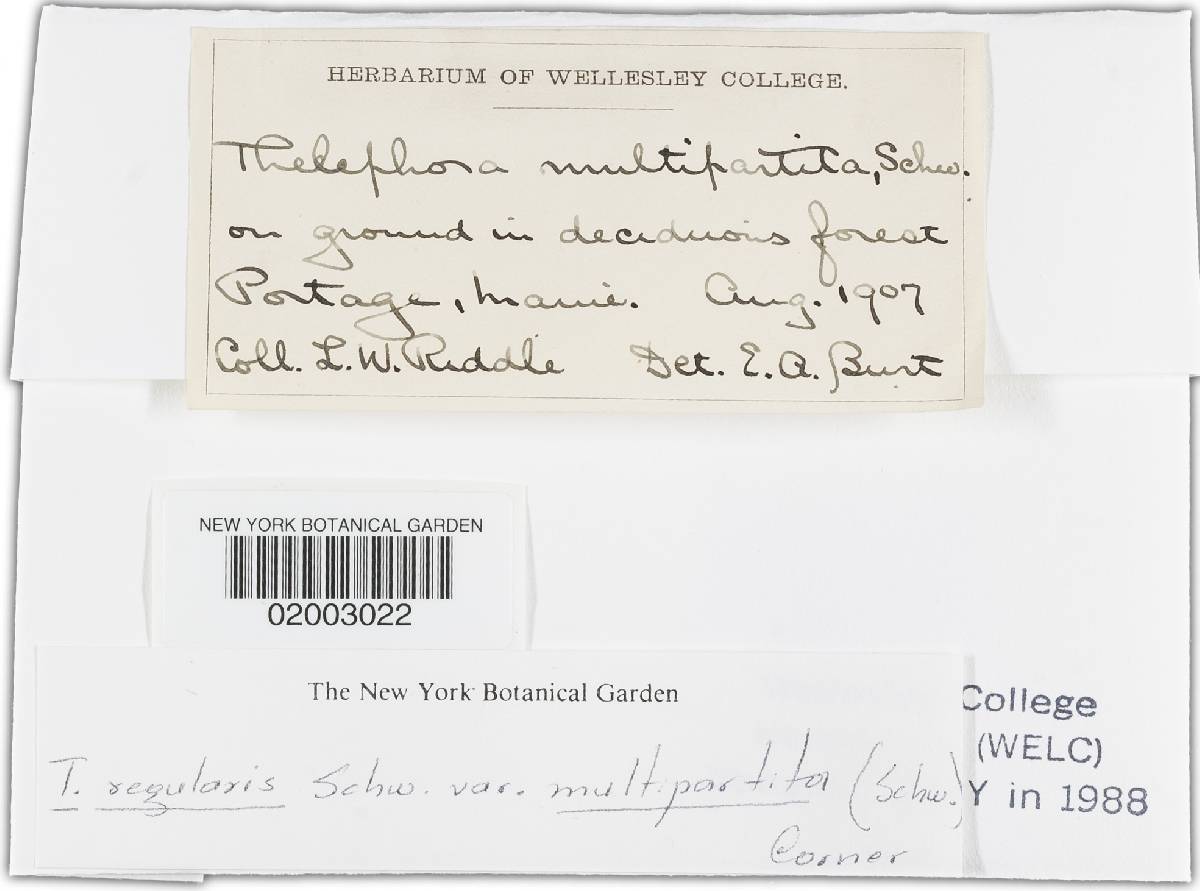 HERBARIUM OF WELLESLEY COLLEGE.
Thelephora multipartita, Schw.
on ground in deciduous forest
Portage, Maine. Aug. 1907
Coll. L. W. Riddle Det. E. A. Burt
NEW YORK BOTANICAL GARDEN
02003022
The New York Botanical Garden
T. regularis Schw. var. multipartita (Schw.)
Corner
College
(WELC)
Y in 1988